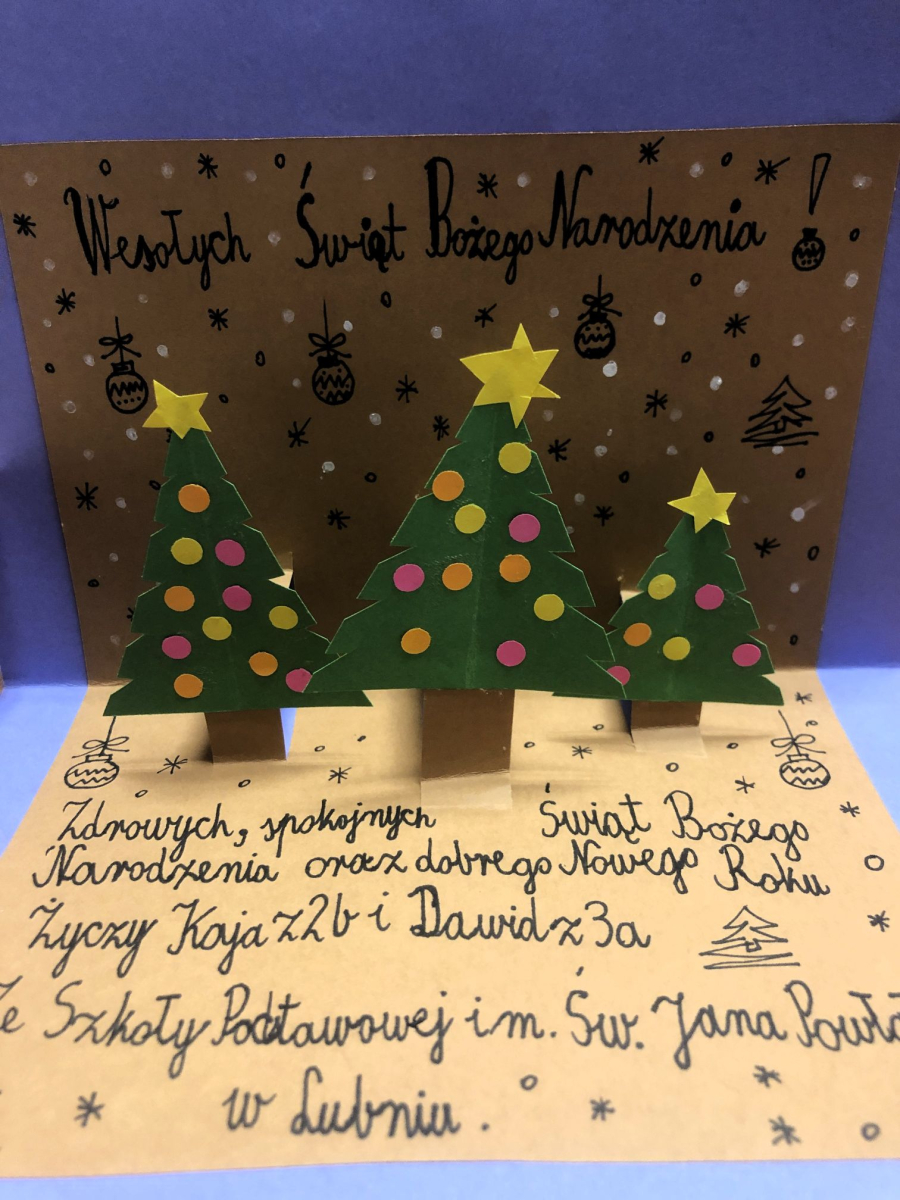 Wesołych Świąt Bożego Narodzenia!
Zdrowych, spokojnych Świąt Bożego
Narodzenia oraz dobrego Nowego Roku
Życzy Kaja z 2b i Dawid z 3a
Ze Szkoły Podstawowej im. Św. Jana
w Lubniu.